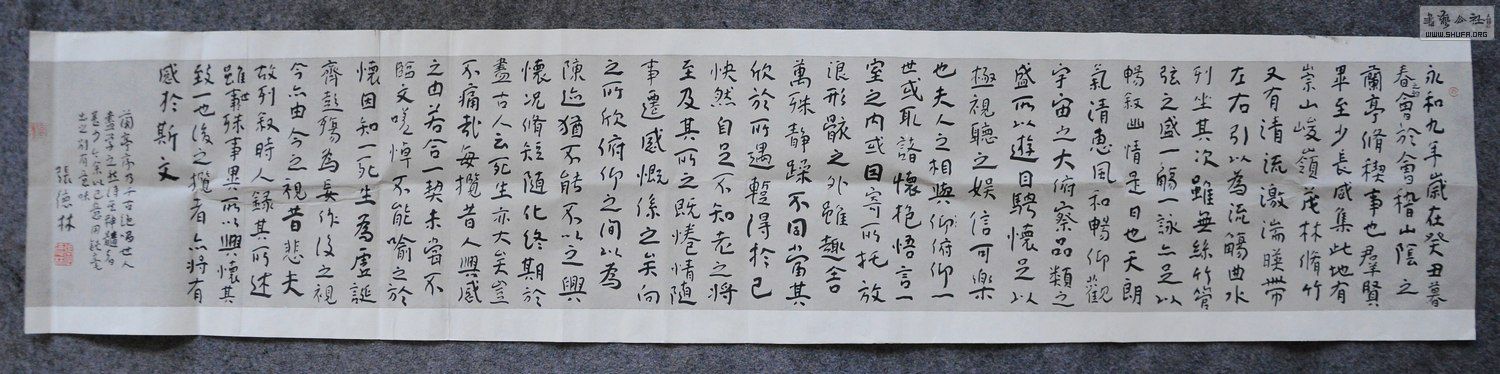 永和九年歲在癸丑暮
春會於會稽山陰之
蘭亭脩禊事也羣賢
畢至少長咸集此地有
崇山峻嶺茂林脩竹
又有清流激湍暎帶
左右引以為流觴曲水
列坐其次雖無絲竹管
弦之盛一觴一詠亦足以
暢敘幽情是日也天朗
氣清惠風和暢仰觀
宇宙之大俯察品類之
盛所以遊目騁懷足以
極視聽之娛信可樂
也夫人之相與仰俯仰一
世或取諸懷抱悟言一
室之內或因寄所托放
浪形骸之外雖趣舍
萬殊靜躁不同當其
欣於所遇蹔得於己
快然自足不知老之將
至及其所之既惓情隨
事遷感慨係之矣向
之所欣俯仰之間以為
陳迹猶不能不以之興
懷況脩短隨化終期於
盡古人云死生亦大矣豈
不痛哉每攬昔人興感
之由若合一契未嘗不
臨文嗟悼不能喻之於
懷固知一死生為虛誕
齊彭殤為妄作後之視
今亦由今之視昔悲夫
故列敘時人錄其所述
雖世殊事異所以興懷其
致一也後之攬者亦將有
感於斯文
蘭亭序乃千古絕 世人
出之別有意味
張德林
WWW.SHUFA.ORG